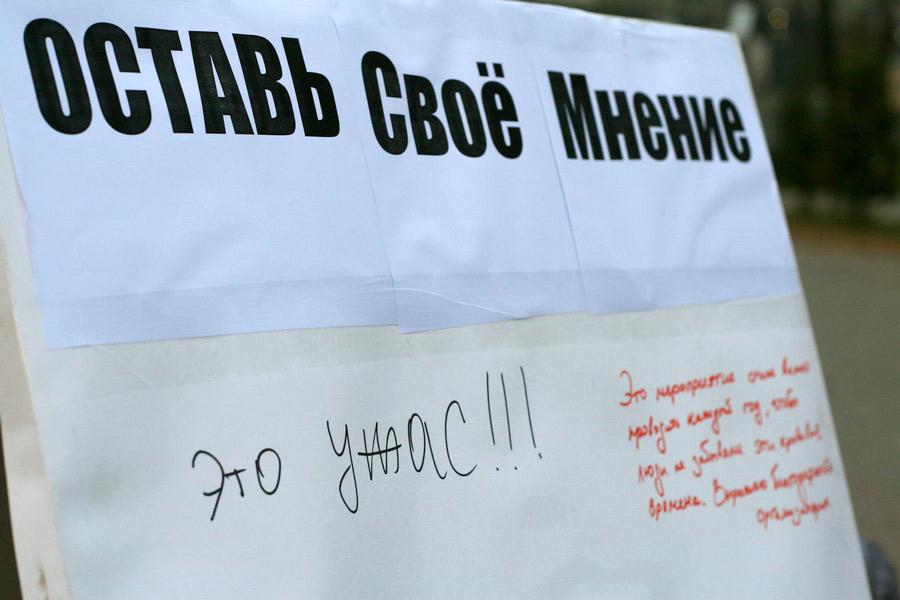 ОСТАВЬ Своё Мнение
Это ужас!!!
Это мероприятие очень важно
проводить каждый год, чтобы
люди не забывали эти кровавые
времена. Выражаю благодарность
организаторам.